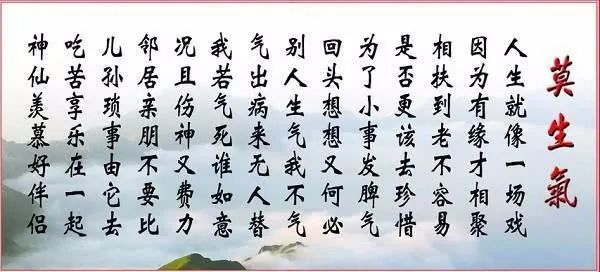 莫生氣
人生就像一场戏
因为有缘才相聚
相扶到老不容易
是否更该去珍惜
为了小事发脾气
回头想想又何必
别人生气我不气
气出病来无人替
我若气死谁如意
况且伤神又费力
邻居亲朋不要比
儿孙琐事由它去
吃苦享乐在一起
神仙羡慕好伴侣